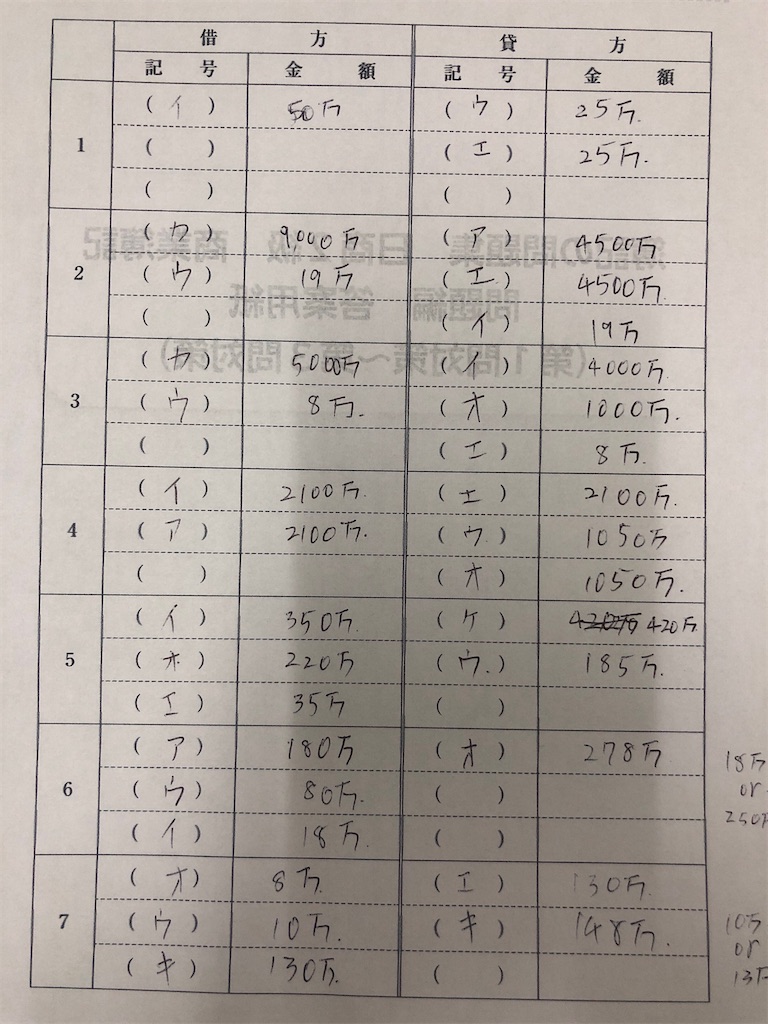 借 方 貸 方
記 号 金 額 記 号 金 額
1
( イ ) 50万 ( ウ ) 25万.
( ) ( エ ) 25万.
( ) ( )
2
( カ ) 9,000万 ( ア ) 4500万
( ウ ) 19万 ( エ ) 4500万
( ) ( イ ) 19万
3
( カ ) 5000万 ( イ ) 4000万
( ウ ) 8万. ( オ ) 1000万.
( ) ( エ ) 8万.
4
( イ ) 2100万. ( エ ) 2100万.
( ア ) 2100万. ( ウ ) 1050万
( ) ( オ ) 1050万.
5
( イ ) 350万. ( ケ ) 420万
( ホ ) 220万 ( ウ. ) 185万.
( エ ) 35万 ( )
6
( ア ) 180万 ( オ ) 278万
( ウ ) 80万. ( )
( イ ) 18万. ( )
18万
or
250万
7
( オ ) 8万. ( エ ) 130万.
( ウ ) 10万. ( キ ) 148万.
( キ ) 130万. ( )
10万
or
13万
簿記の問題集 日商2級 商業簿記
問題編 答案用紙
(第1問対策~第3問対策)